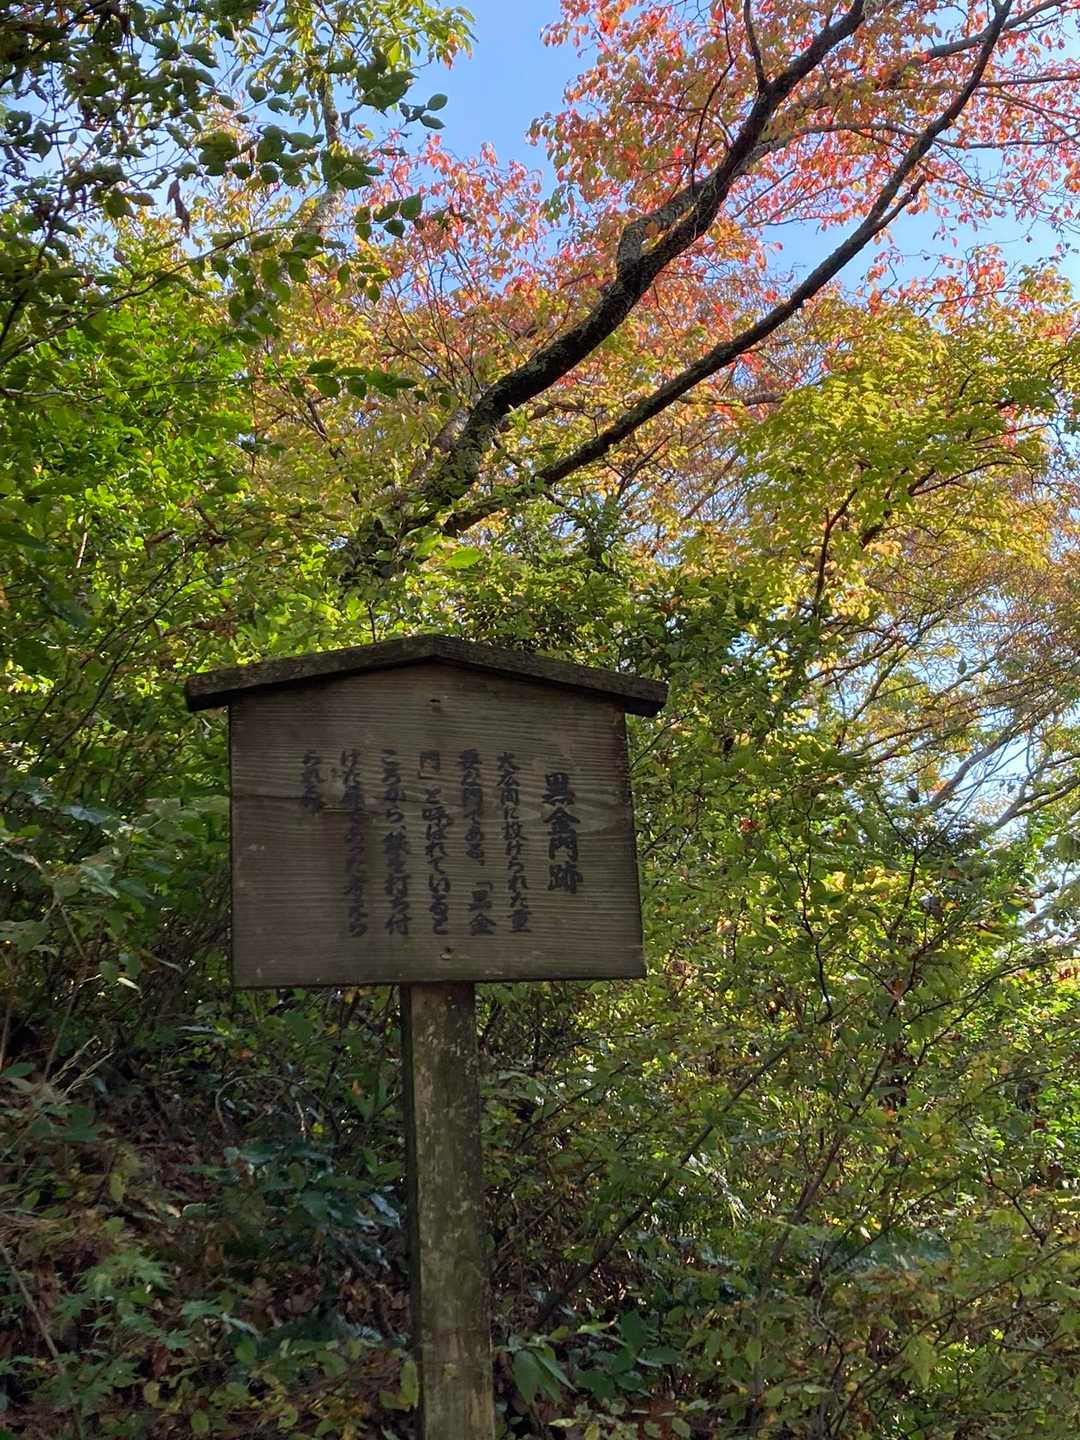 黒金門跡
大広間に設けられた重
要な門である。「黒金
門」と呼ばれていると
ころから鉄を打ち付
けた門であった考えら
られる。